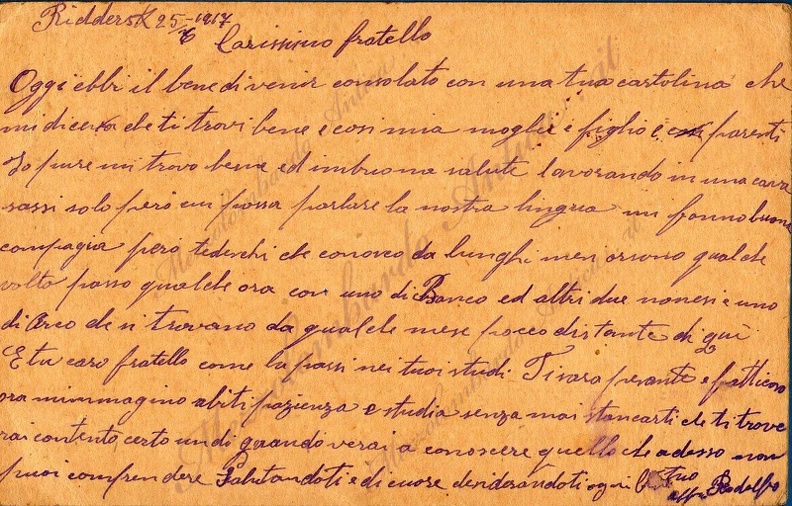 Riddersk 25/6-1917
Carissimo fratello
Oggi ebbi il bene di venir consolato con una tua cartolina che
mi dice che ti trovi bene e cosi mia moglie e figlio e parenti
Io pure mi trovo bene ed in buona salute lavorando in una cava
sassi solo pero cui possa parlare la nostra lingua mi fanno buona
compagia pero tedeschi che conosco da lunghi mesi or sono qualche
volta passo qualche ora con uno di Banco ed altri due nonesi e uno
di Arco che si trovano da qualche mese pocco distante di qui
E tu caro fratello come la passi nei tuoi studi Ti sara pesante e fatticoso
ora mimmagino abiti pazienza e studia senza mai stancarti che ti trove
rai contento certo un di quando verai a conoscere quello che adesso non
puoi comprendere Salutandoti e di cuore desiderandoti ogni tuo
aff. Rodolfo
Marcolombardo Antica